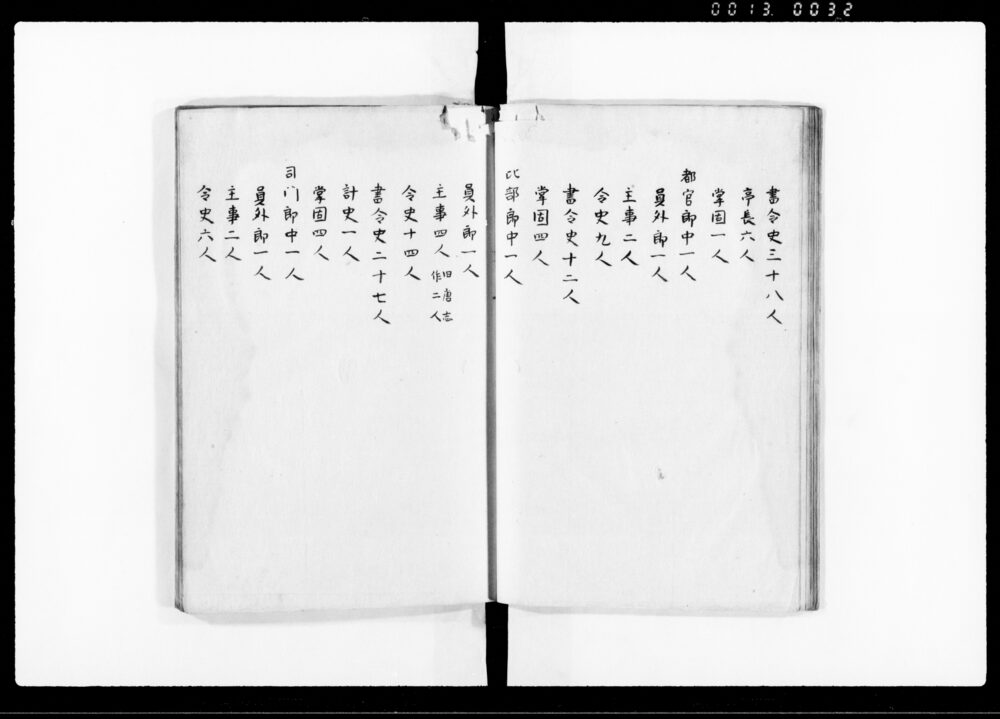 0013 0032
書令史三十八人
亭長六人
掌固一人
都官郎中一人
員外郎一人
主事二人
令史九人
書令史十二人
掌固四人
比部郎中一人
員外郎一人
主事四人 旧唐志作二人
令史十四人
書令史二十七人
計史一人
掌固四人
司门郎中一人
員外郎一人
主事二人
令史六人